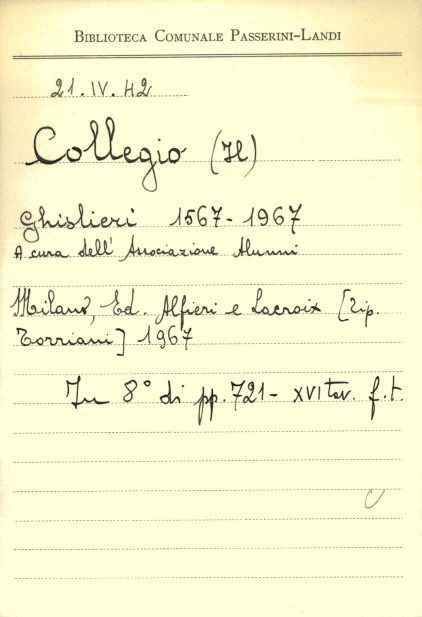 BIBLIOTECA COMUNALE PASSERINI-LANDI
21.IV.42
Collegio (Il)
Ghislieri 1567-1967
A cura dell' Associazione Alunni
Milano, Ed. Alfieri e Lacroix [Tip.
Torriani] 1967
In 8° di pp. 721- XVI tav. f.t.